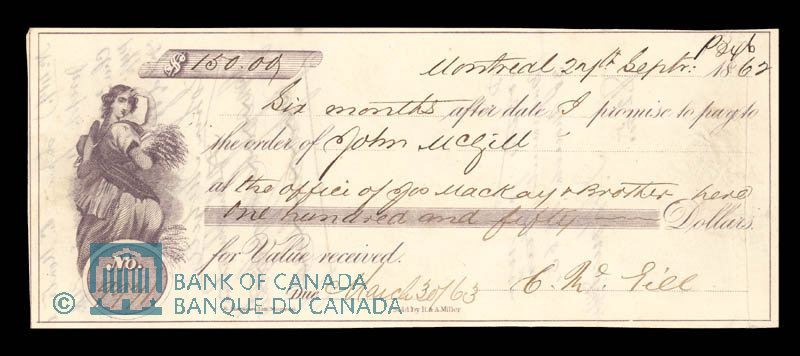 $ 150.00
Montreal 27th Septr: 1862
Six months after date I promise to pay to
the order of John McGill
at the office of Jos Mackay & Brother here
One hundred and fifty Dollars.
for Value received.
No.
Due March 30/63 C. Mc Gill
Sold by R & A Miller
© BANK OF CANADA
BANQUE DU CANADA